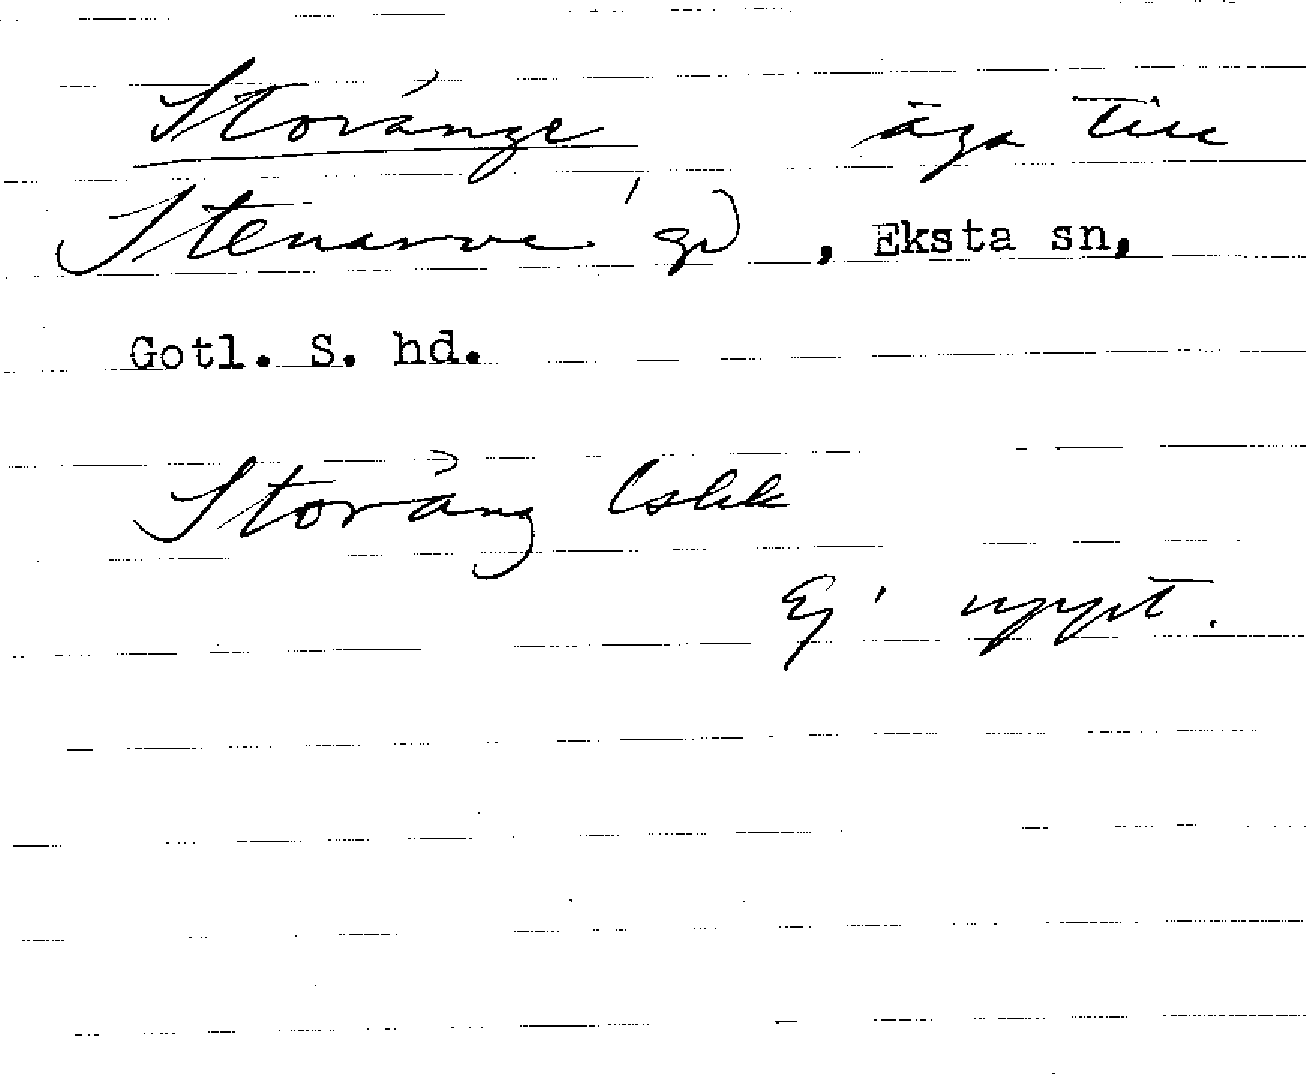 Storänge äga till
Stenarve gd, Eksta sn,
Gotl. S. hd.
Storäng
Ej uppt.